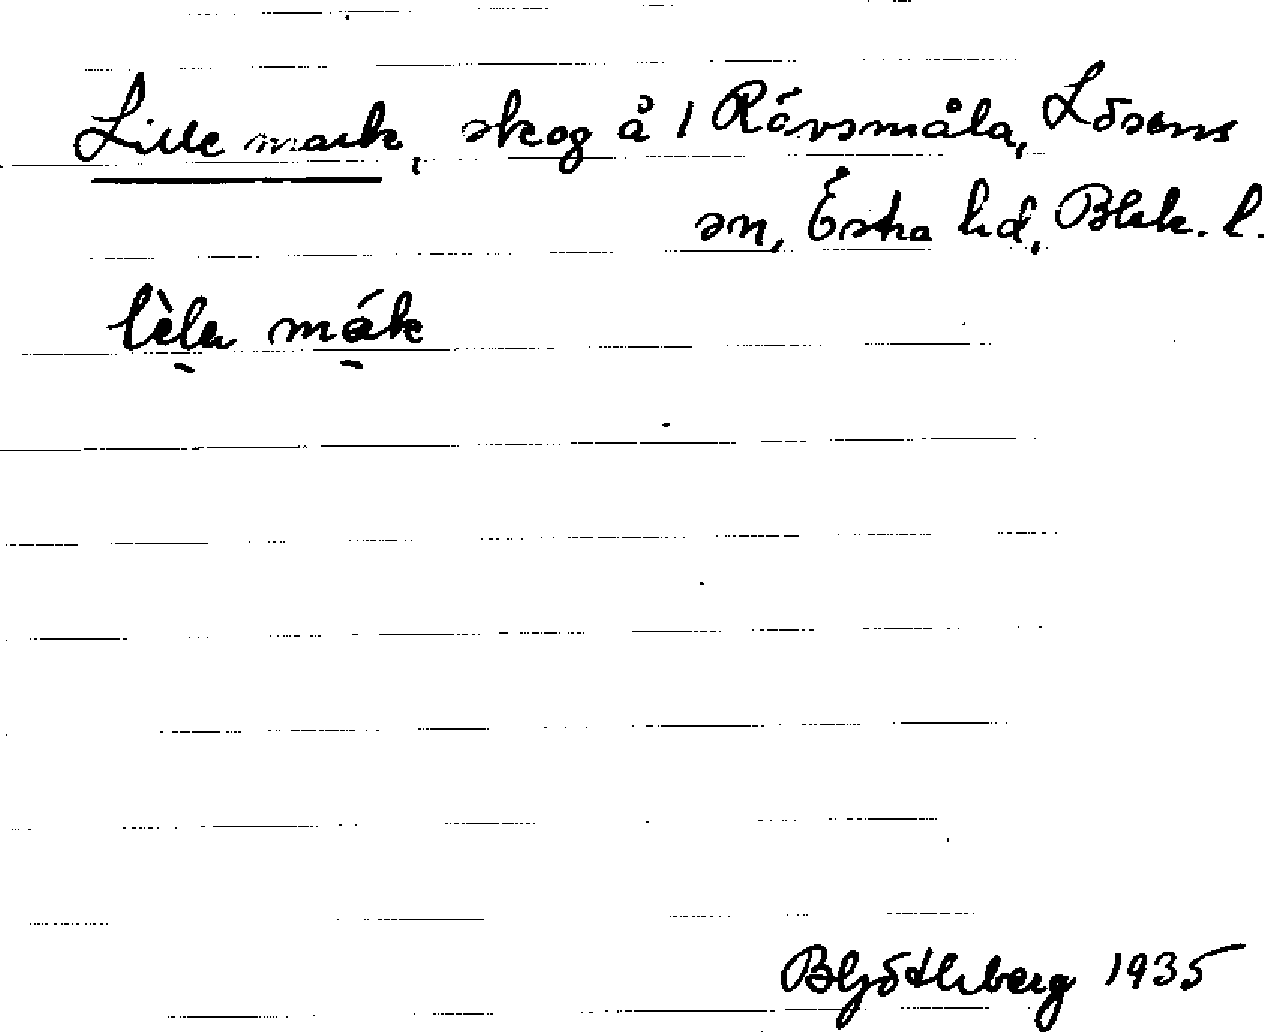 Lille mark, skog å 1 Rävsmåla, Lösens
sn, Östra hd, Blek. l.
lèla mák
B Ljöthberg 1935